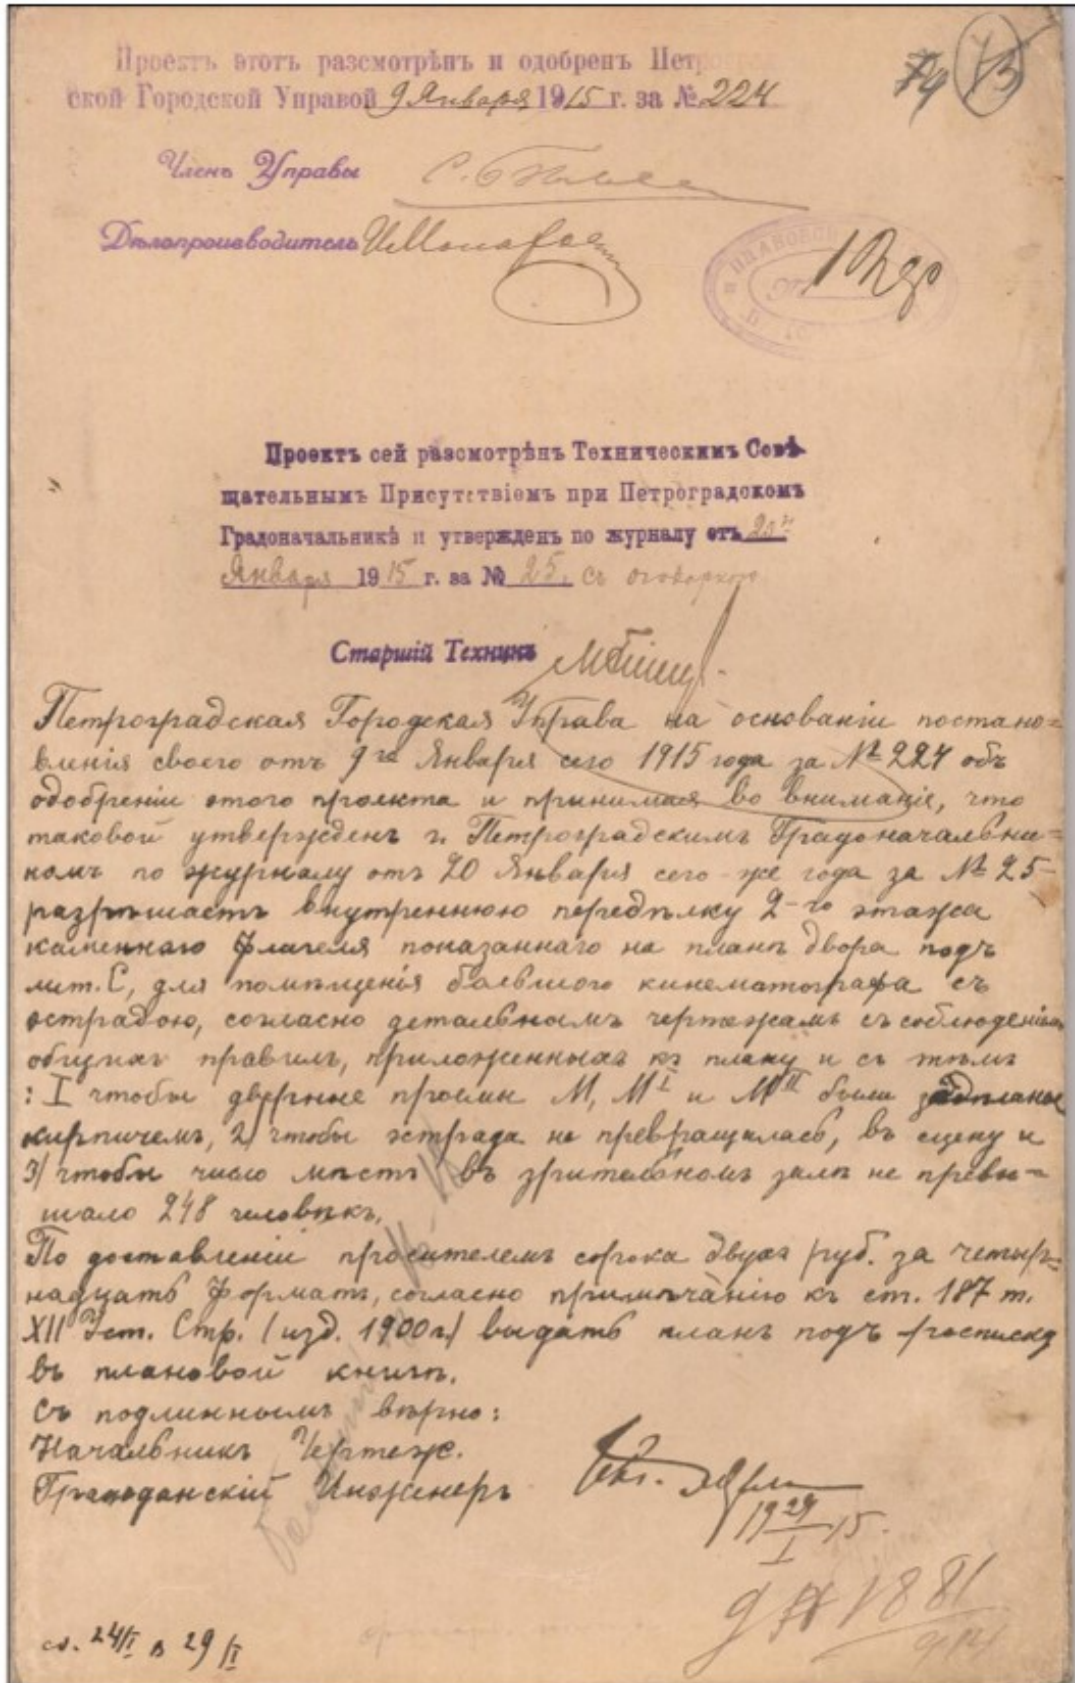 74 73
Проектъ этотъ разсмотрѣнъ и одобренъ Петроград
ской Городской Управой 9 Января 1915 г. за № 224
Членъ Управы
Дѣлопроизводитель
Проектъ сей разсмотрѣнъ Техническимъ Совѣ-
щательнымъ Присутствіемъ при Петроградскомъ
Градоначальникѣ и утвержденъ по журналу отъ 20го
Января 1915 г. за № 25. съ оговоркою
Старшій Техникъ
Петроградская Городская Управа на основаніи постано=
вленія своего отъ 9го Января сего 1915 года за № 224 объ
одобреніи этого проекта и принимая во вниманіе, что
таковой утвержденъ г. Петроградскимъ Градоначальни=
комъ по журналу отъ 20 Января сего-же года за № 25-
разрѣшаетъ внутреннюю передѣлку 2-го этажа
каменнаго флигеля показаннаго на планѣ двора подъ
лит. С, для помѣщенія большого кинематографа съ
эстрадою, согласно детальнымъ чертежамъ съ соблюденіемъ
общихъ правилъ, приложенныхъ къ плану и съ тѣмъ
: I чтобы дверные проемы М, МI и МII были задѣланы
кирпичемъ, 2/ чтобы эстрада не превращалась, въ сцену и
3/ чтобы число мѣстъ въ зрительномъ залѣ не превы=
шало 248 человѣкъ.
По доставленіи просителемъ сорока двухъ руб. за четыр=
надцать форматъ, согласно примѣчанію къ ст. 187 т.
XII Уст. Стр. (изд. 1900 г.) выдать планъ подъ росписку
въ плановой книгѣ.
Съ подлиннымъ вѣрно:
Начальникъ Чертеж.
Гражданскій Инженеръ
19 29/I 15.
1881
24/I в 29/I